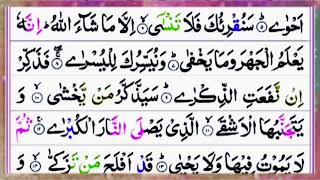 اَحْوٰىۙ۝۵ سَنُقْرِئُكَ فَلَا تَنْسٰۤىۙ۝۶ اِلَّا مَا شَآءَ اللّٰهُؕ اِنَّهٗ
يَعْلَمُ الْجَهْرَ وَمَا يَخْفٰىؕ۝۷ وَنُيَسِّرُكَ لِلْيُسْرٰىۚ۝۸ فَذَكِّرْ
اِنْ نَّفَعَتِ الذِّكْرٰىؕ۝۹ سَيَذَّكَّرُ مَنْ يَّخْشٰىۙ۝۱۰ وَ
يَتَجَنَّبُهَا الْاَشْقَىۙ۝۱۱ الَّذِيْ يَصْلَى النَّارَ الْكُبْرٰىۚ۝۱۲ ثُمَّ
لَا يَمُوْتُ فِيْهَا وَلَا يَحْيٰىؕ۝۱۳ قَدْ اَفْلَحَ مَنْ تَزَكّٰىۙ۝۱۴ وَ